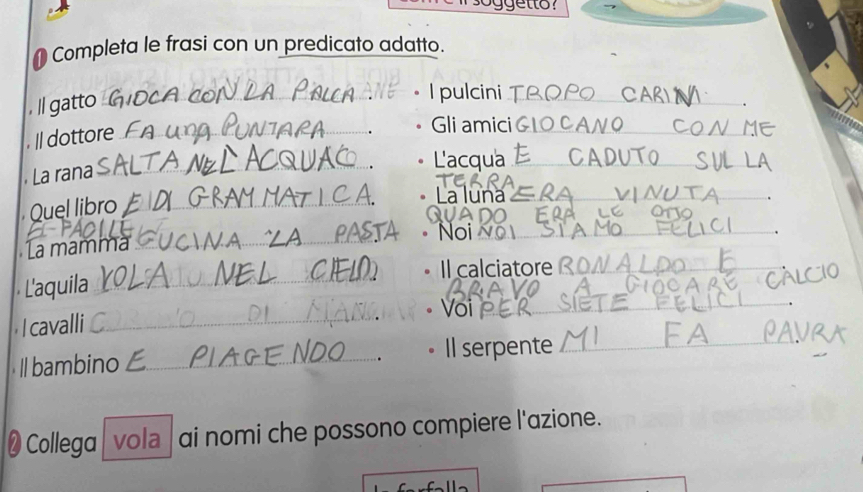 il soggetto?
1 Completa le frasi con un predicato adatto.
• Il gatto GIOCA CON LA PALLA.
• Il dottore FA UNA PUNTARA.
• La rana SALTA NEL ACQUA.
• Quel libro E DI GRAMMATICA.
E FACILE
• La mamma CUCINA LA PASTA
• L'aquila VOLA NEL CIELO.
• I cavalli
• Il bambino E PIAGENDO.
• I pulcini TROPO CARINI.
• Gli amici GIOCANO CON ME
• L'acqua E CADUTO SUL LA
TERRA
• La luna ERA VINUTA.
QUADO ERA LE OTTO
• Noi NOI SIAMO FELICI.
• Il calciatore RONALDO E
BRAVO A GIOCARE CALCIO
• Voi PER SIETE FELICI.
• Il serpente MI FA PAURA
2 Collega vola ai nomi che possono compiere l'azione.